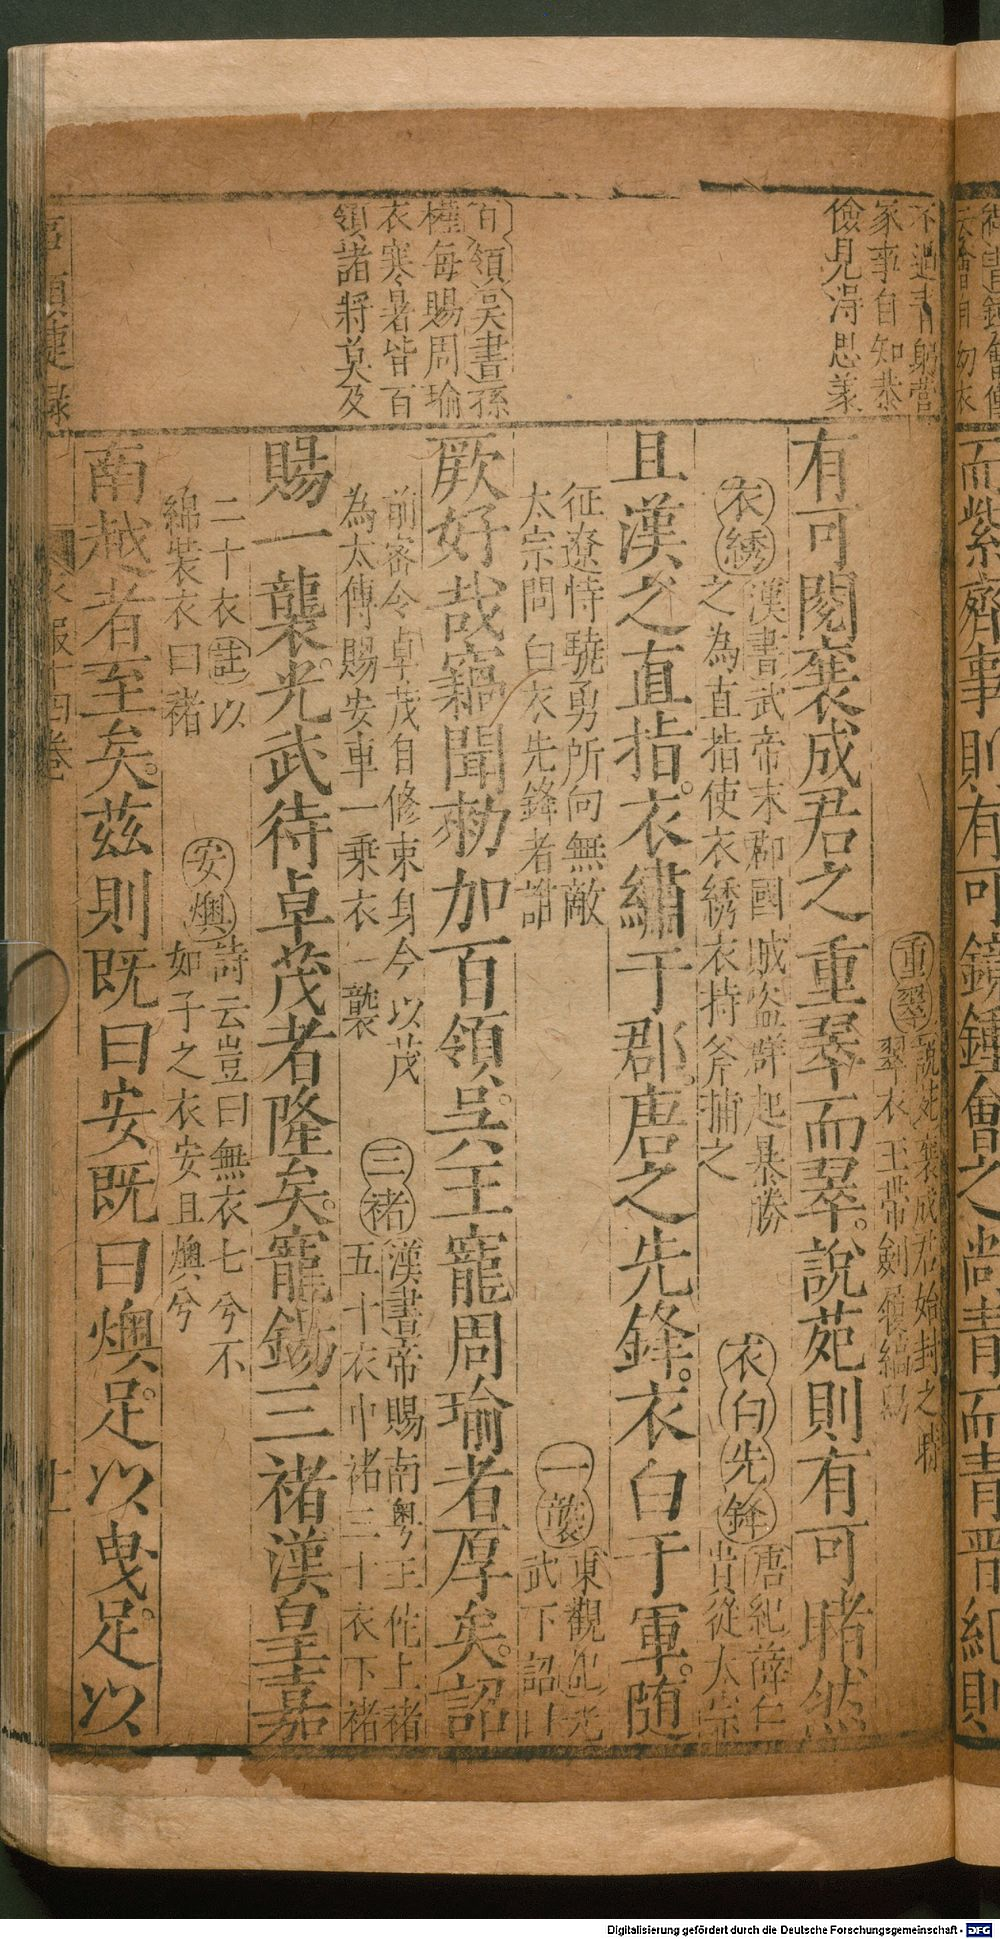 不過青躬營
家事自知恭
儉見淂思羕
百領吳書孫
權每賜周瑜
衣寒暑皆百
領諸將莫及
重翠說苑襄成君始封之時
翠衣王帶劍履縞舄
有可閱襄成君之重翠而翠說苑則有可睹然
衣綉漢書武帝末郡國賊盜群起暴勝
之為直指使衣綉衣持斧捕之
衣白先鋒唐紀薛仁
貴從太宗
且漢之直指衣繡于郡唐之先鋒衣白于軍随
征遼恃驍勇所向無敵
太宗問白衣先鋒者誰
一襲東觀記光
武下詔曰
厥好哉竊聞勑加百領吳王寵周瑜者厚矣詔
前密令卓茂自修束身今以茂
為太傳賜安車一乗衣一襲
三褚漢書帝賜南粵王佗上褚
五十衣中褚三十衣下褚
賜一襲光武待卓茂者隆矣寵錫三褚漢皇嘉
二十衣註以
綿裝衣曰褚
安燠詩云豈曰無衣七兮不
如子之衣安且燠兮
南越者至矣茲則既曰安既曰燠足以曳足以
衣服十四卷
而紫齊事則有可鏡鍾會之尚青而青晋紀則
Digitalisierung gefördert durch die Deutsche Forschungsgemeinschaft - DFG